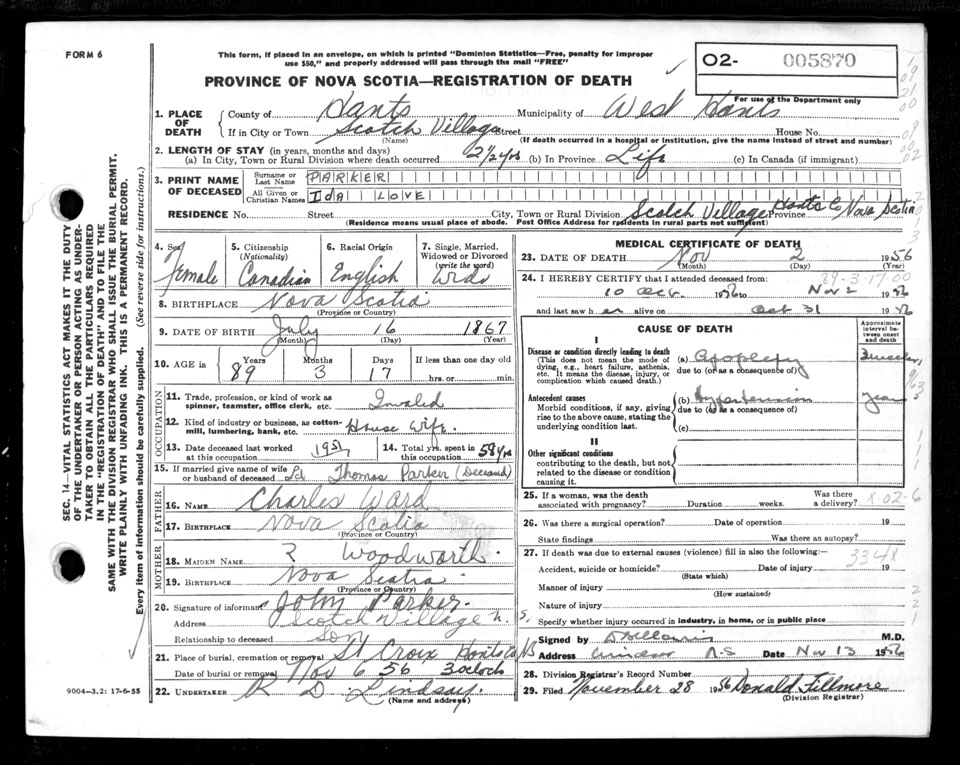 FORM 6
This form, if placed in an envelope, on which is printed "Dominion Statistics—Free, penalty for improper
use $50," and properly addressed will pass through the mail "FREE"
O2- 005870
PROVINCE OF NOVA SCOTIA—REGISTRATION OF DEATH
For use of the Department only
1. PLACE OF DEATH
County of Hants Municipality of West Hants
If in City or Town Scotch Village Street House No.
(Name) (If death occurred in a hospital or institution, give the name instead of street and number)
2. LENGTH OF STAY (in years, months and days)
(a) In City, Town or Rural Division where death occurred 2½ yrs (b) In Province Life (c) In Canada (if immigrant)
3. PRINT NAME OF DECEASED
Surname or Last Name PARKER
All Given or Christian Names IDA LOVE
RESIDENCE No. Street City, Town or Rural Division Scotch Village Hants Co Province Nova Scotia
(Residence means usual place of abode. Post Office Address for residents in rural parts not sufficient)
4. Sex Female
5. Citizenship (Nationality) Canadian
6. Racial Origin English
7. Single, Married, Widowed or Divorced (write the word) Wid
8. BIRTHPLACE Nova Scotia
(Province or Country)
9. DATE OF BIRTH July 16 1867
(Month) (Day) (Year)
10. AGE in Years 89 Months 3 Days 17 If less than one day old hrs. or min.
OCCUPATION
11. Trade, profession, or kind of work as
spinner, teamster, office clerk, etc. Invalid
12. Kind of industry or business, as cotton-
mill, lumbering, bank, etc. House Wife
13. Date deceased last worked at this occupation 1951
14. Total yrs. spent in this occupation 58 yrs
15. If married give name of wife
or husband of deceased Thomas Parker (Deceased)
FATHER
16. NAME Charles Ward
17. BIRTHPLACE Nova Scotia
(Province or Country)
MOTHER
18. MAIDEN NAME Woodworth
19. BIRTHPLACE Nova Scotia
(Province or Country)
20. Signature of informant John Parker
Address Scotch Village N.S.
Relationship to deceased Son
21. Place of burial, cremation or removal St Croix Hants Co NS
Date of burial or removal Nov 6 56 3 oclock
22. UNDERTAKER R D. Lindsay.
(Name and address)
MEDICAL CERTIFICATE OF DEATH
23. DATE OF DEATH Nov 2 1956
(Month) (Day) (Year)
24. I HEREBY CERTIFY that I attended deceased from:
10 Oct. 1956 to Nov 2 1956
and last saw her alive on Oct 31 1956
CAUSE OF DEATH
Approximate interval between onset and death
I
Disease or condition directly leading to death (a) Apoplexy
(This does not mean the mode of
dying, e.g., heart failure, asthenia,
etc. It means the disease, injury, or
complication which caused death.)
due to (or as a consequence of)
Antecedent causes (b) Hypertension years
Morbid conditions, if any, giving
rise to the above cause, stating the
underlying condition last.
due to (or as a consequence of)
(c)
II
Other significant conditions
contributing to the death, but not
related to the disease or condition
causing it.
25. If a woman, was the death
associated with pregnancy? Duration weeks. Was there a delivery?
26. Was there a surgical operation? Date of operation 19
State findings Was there an autopsy?
27. If death was due to external causes (violence) fill in also the following:—
Accident, suicide or homicide? Date of injury 19
(State which)
Manner of injury
(How sustained)
Nature of injury
Specify whether injury occurred in industry, in home, or in public place
Signed by M.D.
Address Windsor N.S Date Nov 13 1956
28. Division Registrar's Record Number
29. Filed November 28 1956 Donald Fillmore
SEC. 14—VITAL STATISTICS ACT MAKES IT THE DUTY
OF THE UNDERTAKER OR PERSON ACTING AS UNDER-
TAKER TO OBTAIN ALL THE PARTICULARS REQUIRED
IN THE "REGISTRATION OF DEATH" AND TO FILE THE
SAME WITH THE DIVISION REGISTRAR WHO SHALL ISSUE THE BURIAL PERMIT.
WRITE PLAINLY WITH UNFADING INK. THIS IS A PERMANENT RECORD.
Every item of information should be carefully supplied. (See reverse side for instructions.)
9004—3.2: 17-6-55